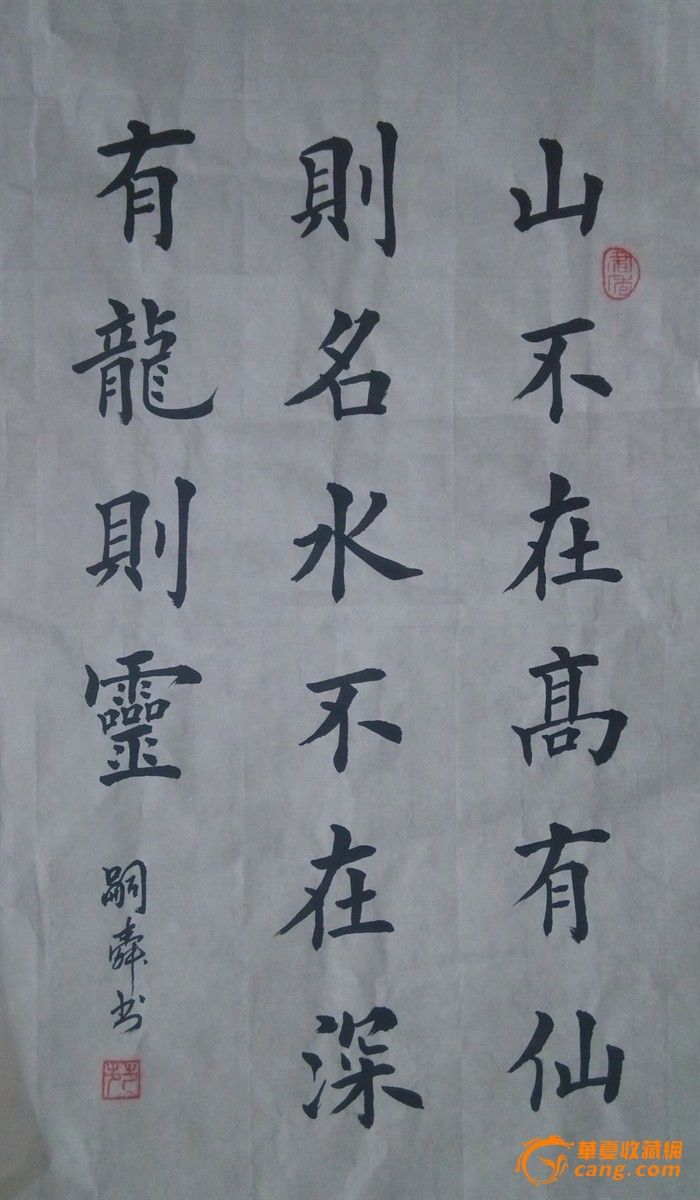 山不在高有仙
則名水不在深
有龍則靈
嗣舜书
華夏收藏網
cang.com